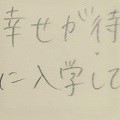 幸せが待
に入学して